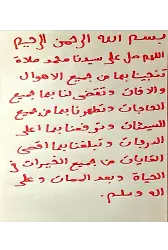 بسم الله الرحمن الرحيم
اللهم صل على سيدنا محمد صلاة
تنجينا بها من جميع الاهوال
والافات وتقضي لنا بها جميع
الحاجات وتطهرنا بها من جميع
السيئات وترفعنا بها اعلى
الدرجات وتبلغنا بها اقصى
الغايات من جميع الخيرات في
الحياة وبعد الممات وعلى
اله وسلم.